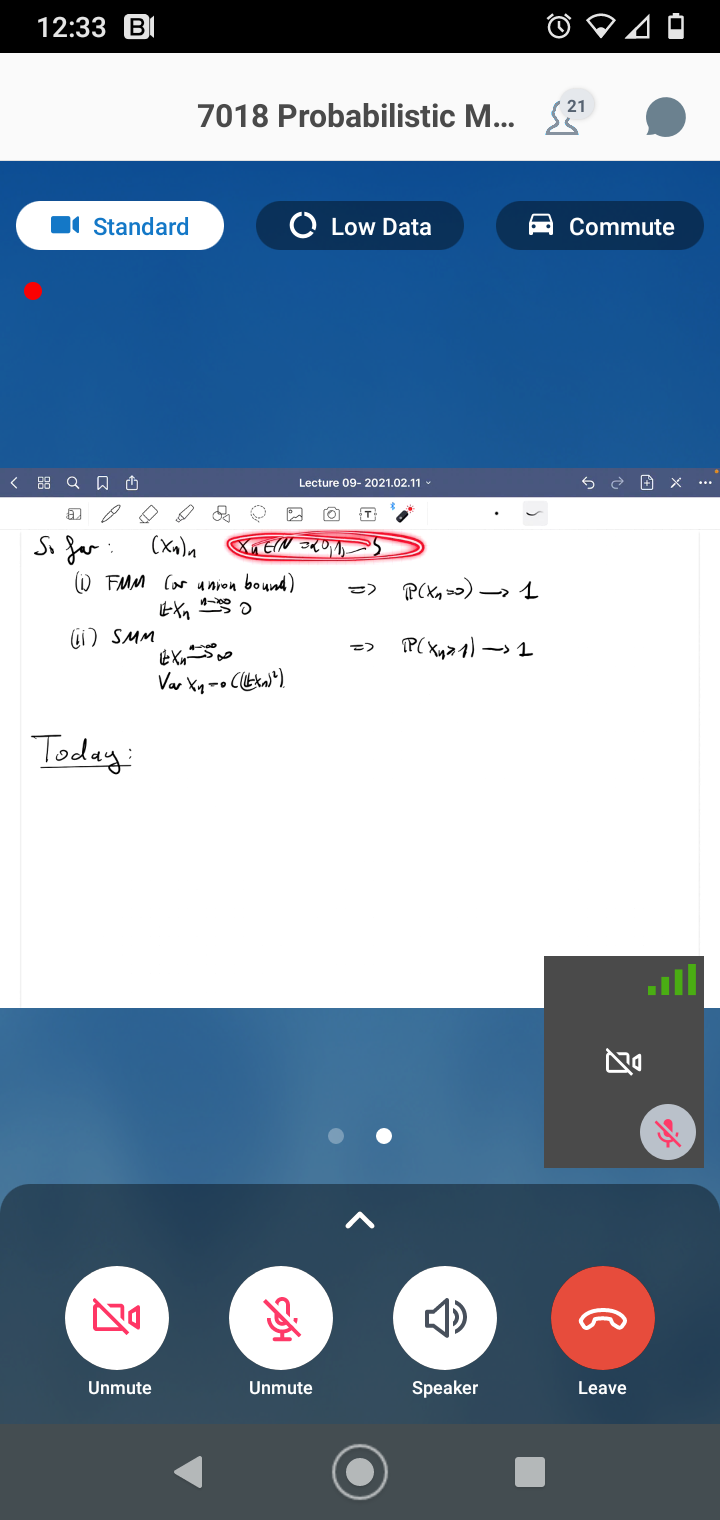 12:33
7018 Probabilistic M... 21
Standard Low Data Commute
Lecture 09- 2021.02.11
So far: (Xn)n Xn ∈ ℕ = {0,1,...}
(i) FMM (or union bound) => ℙ(Xn=0) → 1
𝔼Xn n→∞→ 0
(ii) SMM => ℙ(Xn≥1) → 1
𝔼Xn n→∞→ ∞
Var Xn = o((𝔼Xn)²).
Today:
Unmute Unmute Speaker Leave